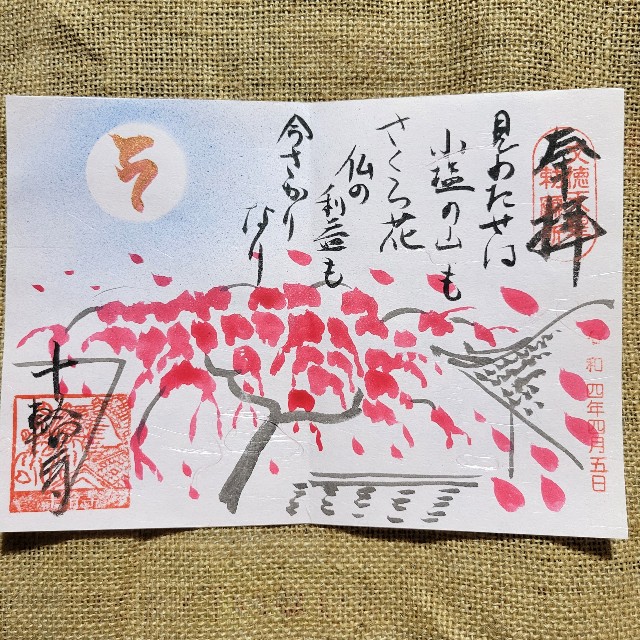 奉拝
文徳天皇
勅願所
見わたせは
小塩の山も
さくら花
仏の
利益も
今さかり
なり
令和四年四月五日
十輪寺